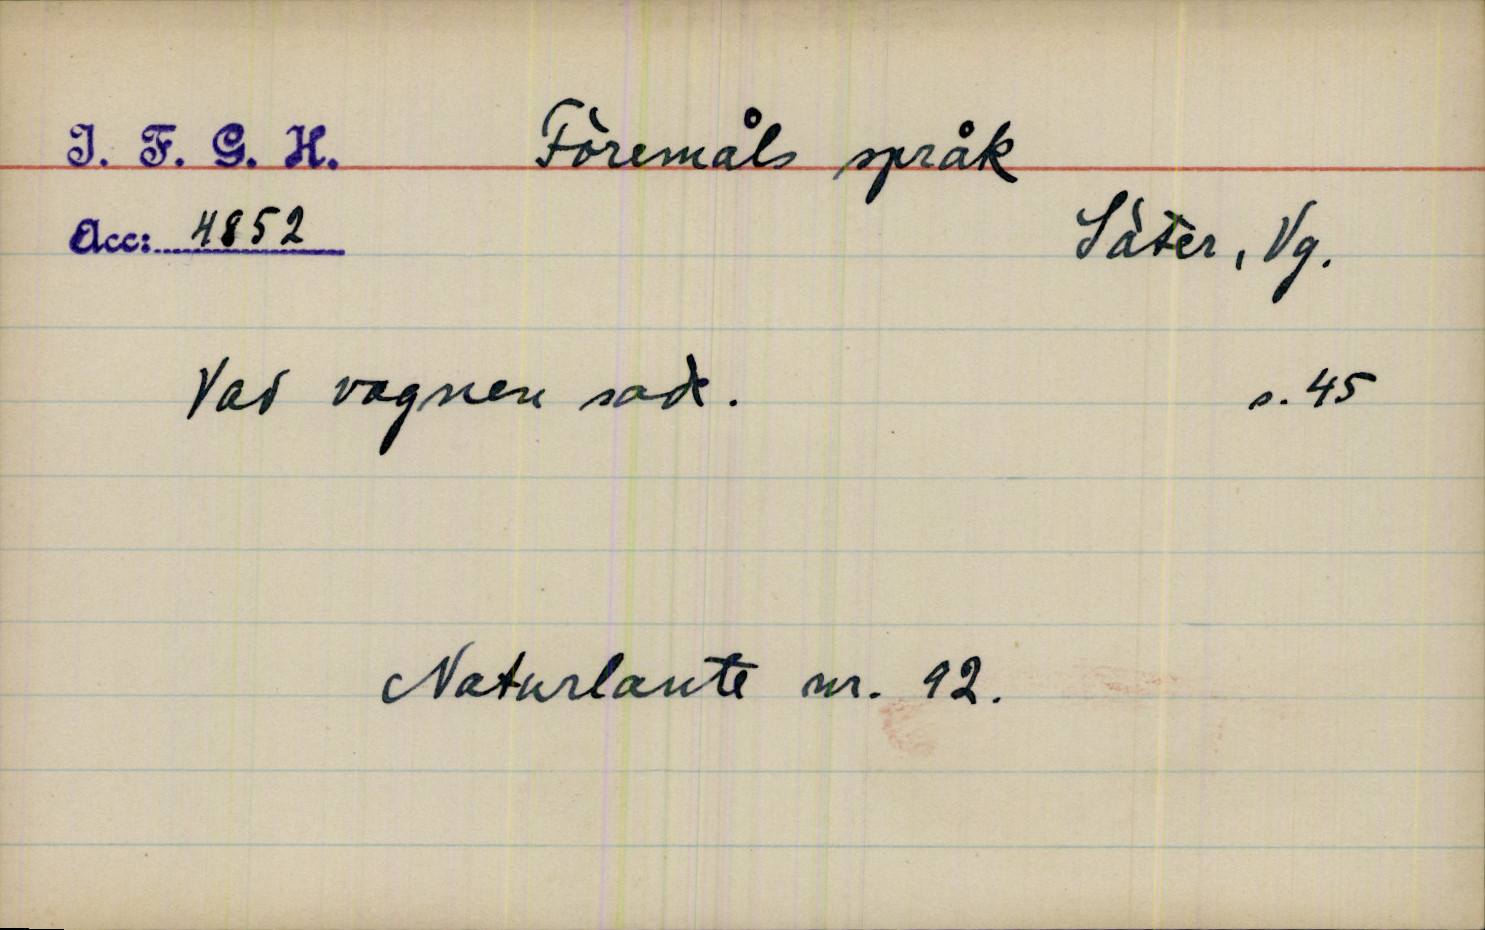 I. F. G. H. Föremåls språk
Acc: 4852 Säter, Vg.
Vad vagnen sade. s. 45
Naturlaute nr. 92.